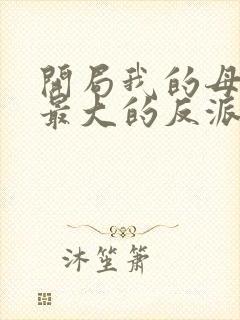 開局我的母
最大的反派
沐笙簫